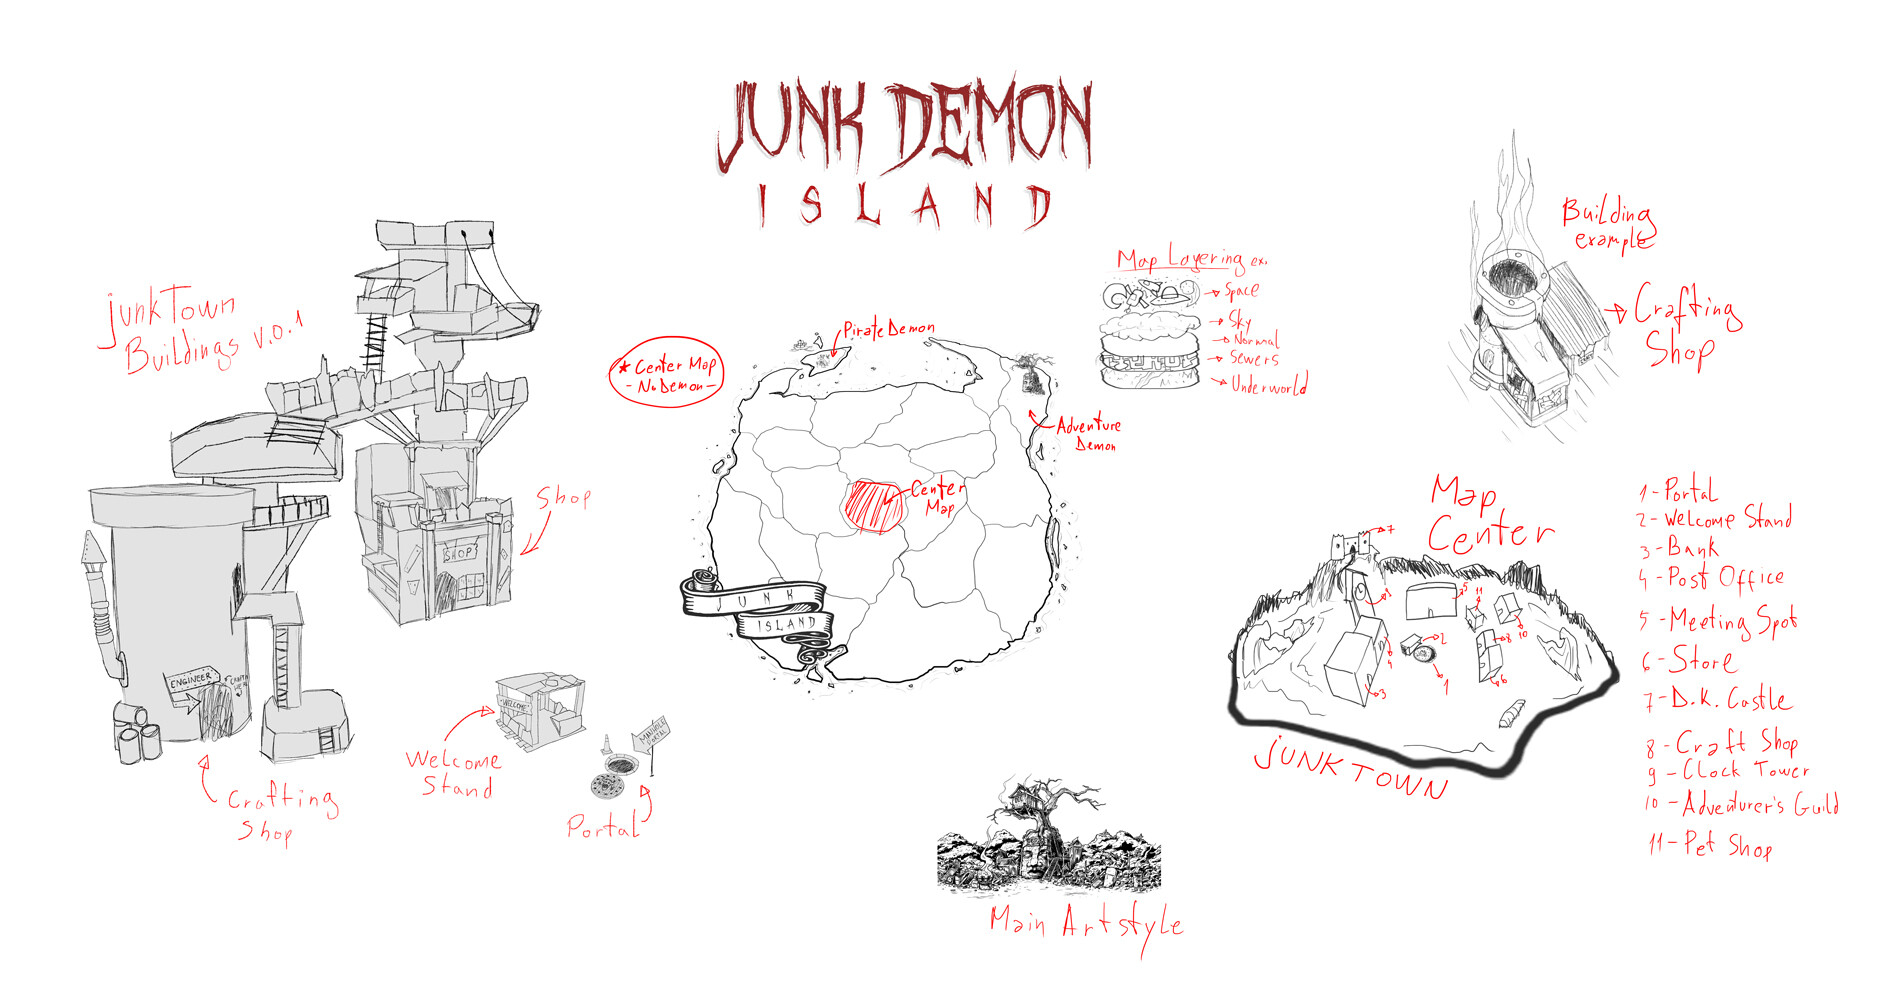 JUNK DEMON
ISLAND
junkTown
Buildings v.0.1
Shop
SHOP
ENGINEER
Crafting
Shop
WELCOME
Welcome
Stand
PORTAL
Portal
* Center Map
- No Demon -
Pirate Demon
Adventure
Demon
Center
Map
JUNK
ISLAND
Map Layering ex.
Space
Sky
Normal
Sewers
Underworld
Building
example
Crafting
Shop
Map
Center
7
9
5
11
10
8
2
4
6
1
3
JUNKTOWN
1 - Portal
2 - Welcome Stand
3 - Bank
4 - Post Office
5 - Meeting Spot
6 - Store
7 - D.K. Castle
8 - Craft Shop
9 - Clock Tower
10 - Adventurer's Guild
11 - Pet Shop
Main Artstyle